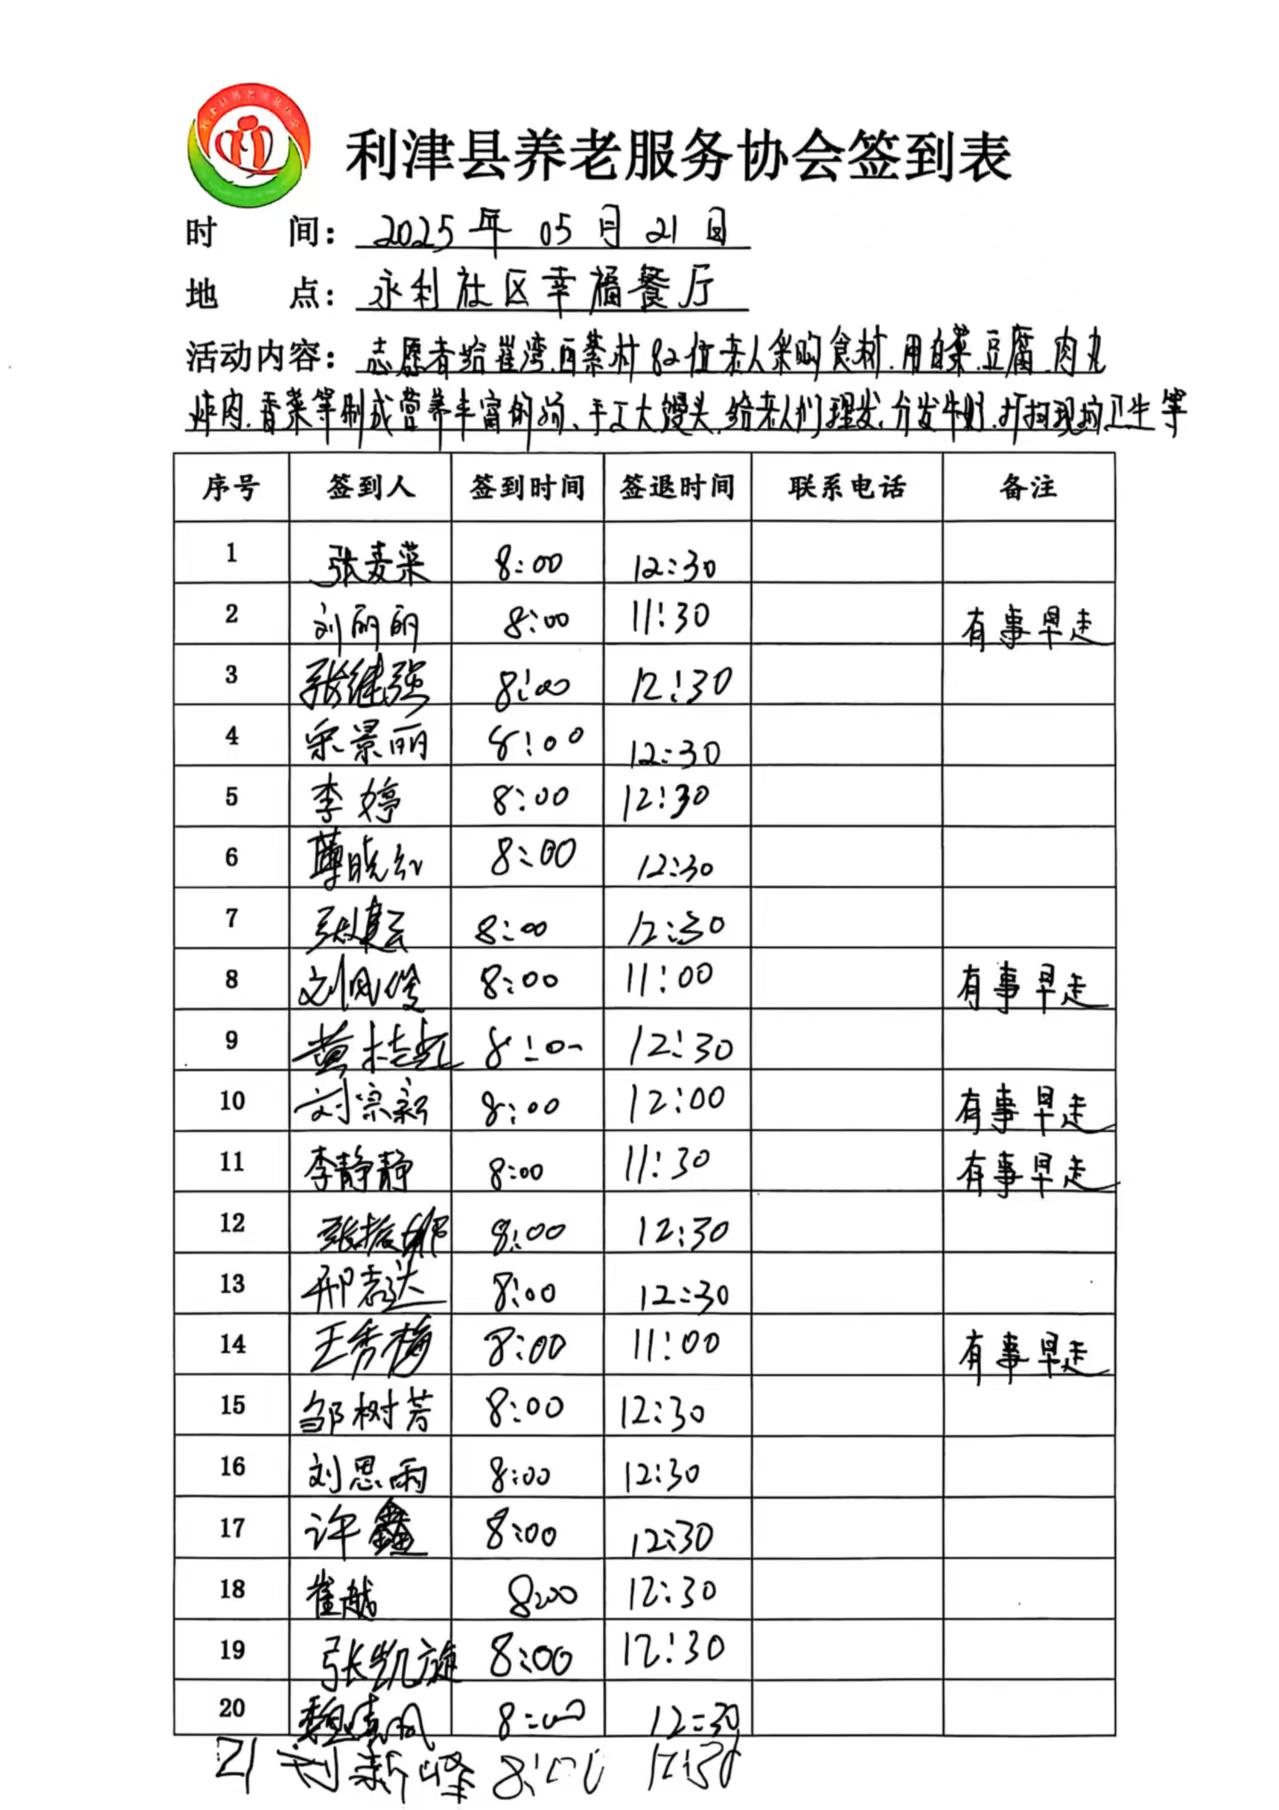 利津县养老服务协会签到表
时 间: 2025年05月21日
地 点: 永利社区幸福餐厅
活动内容: 志愿者给崔湾、西綦村82位老人采购食材、用白菜、豆腐、肉丸
炸肉、香菜等制成营养丰富的汤、手工大馒头、给老人们理发、分发牛奶、打扫现场卫生等
序号 签到人 签到时间 签退时间 联系电话 备注
1 张麦菜 8:00 12:30
2 刘丽丽 8:00 11:30 有事早走
3 张继强 8:00 12:30
4 宋景丽 8:00 12:30
5 李婷 8:00 12:30
6 薄晓红 8:00 12:30
7 张建云 8:00 12:30
8 刘凤俊 8:00 11:00 有事早走
9 黄桂红 8:00 12:30
10 刘宗新 8:00 12:00 有事早走
11 李静静 8:00 11:30 有事早走
12 张振 8:00 12:30
13 邢志达 8:00 12:30
14 王秀梅 8:00 11:00 有事早走
15 邹树芳 8:00 12:30
16 刘思雨 8:00 12:30
17 许鑫 8:00 12:30
18 崔越 8:00 12:30
19 张凯旋 8:00 12:30
20 魏凤 8:00 12:30
21 刘新峰 8:00 12:30